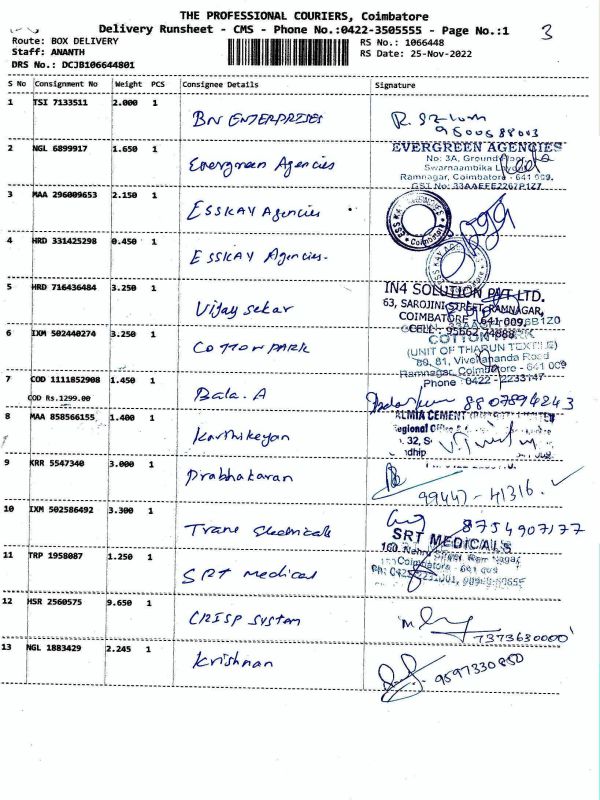 THE PROFESSIONAL COURIERS, Coimbatore
Delivery Runsheet - CMS - Phone No.:0422-3505555 - Page No.:1
3
Route: BOX DELIVERY
RS No.: 1066448
Staff: ANANTH
RS Date: 25-Nov-2022
DRS No.: DCJB106644801
S No Consignment No Weight PCS Consignee Details Signature
1 TSI 7133511 2.000 1 BN ENTERPRISES
9500588003
2 NGL 6899917 1.650 1 Evergreen Agencies
EVERGREEN AGENCIES
No: 3A, Ground Floor,
Swarnaambika
Ramnagar, Coimbatore - 641 009.
GST No: 33AAEFE2267P1Z7
3 MAA 296009653 2.150 1 ESSKAY Agencies
4 HRD 331425298 0.450 1 ESSKAY Agencies.
5 HRD 716436484 3.250 1 Vijay sekar
IN4 SOLUTION PVT LTD.
63, SAROJINI STREET, RAMNAGAR,
COIMBATORE - 641 009.
CELL: 95662 74888
6 IXM 502440274 3.250 1 COTTON PARK
COTTON PARK
(UNIT OF THARUN TEXTILE)
60, 81, Vivekananda Road
Ramnagar, Coimbatore - 641 009
Phone : 0422 - 2233147
7 COD 1111852908 1.450 1 Bala. A
8807894243
COD Rs.1299.00
8 MAA 858566155 1.400 1 Karthikeyan
9 KRR 5547340 3.000 1 Prabhakaran
99447-41316
10 IXM 502586492 3.300 1 Trans Electricals
8754907177
11 TRP 1958087 1.250 1 SRT medical
SRT MEDICALS
12 HSR 2560575 9.650 1 CRISP System
7373630000
13 NGL 1883429 2.245 1 Krishnan
9597330850